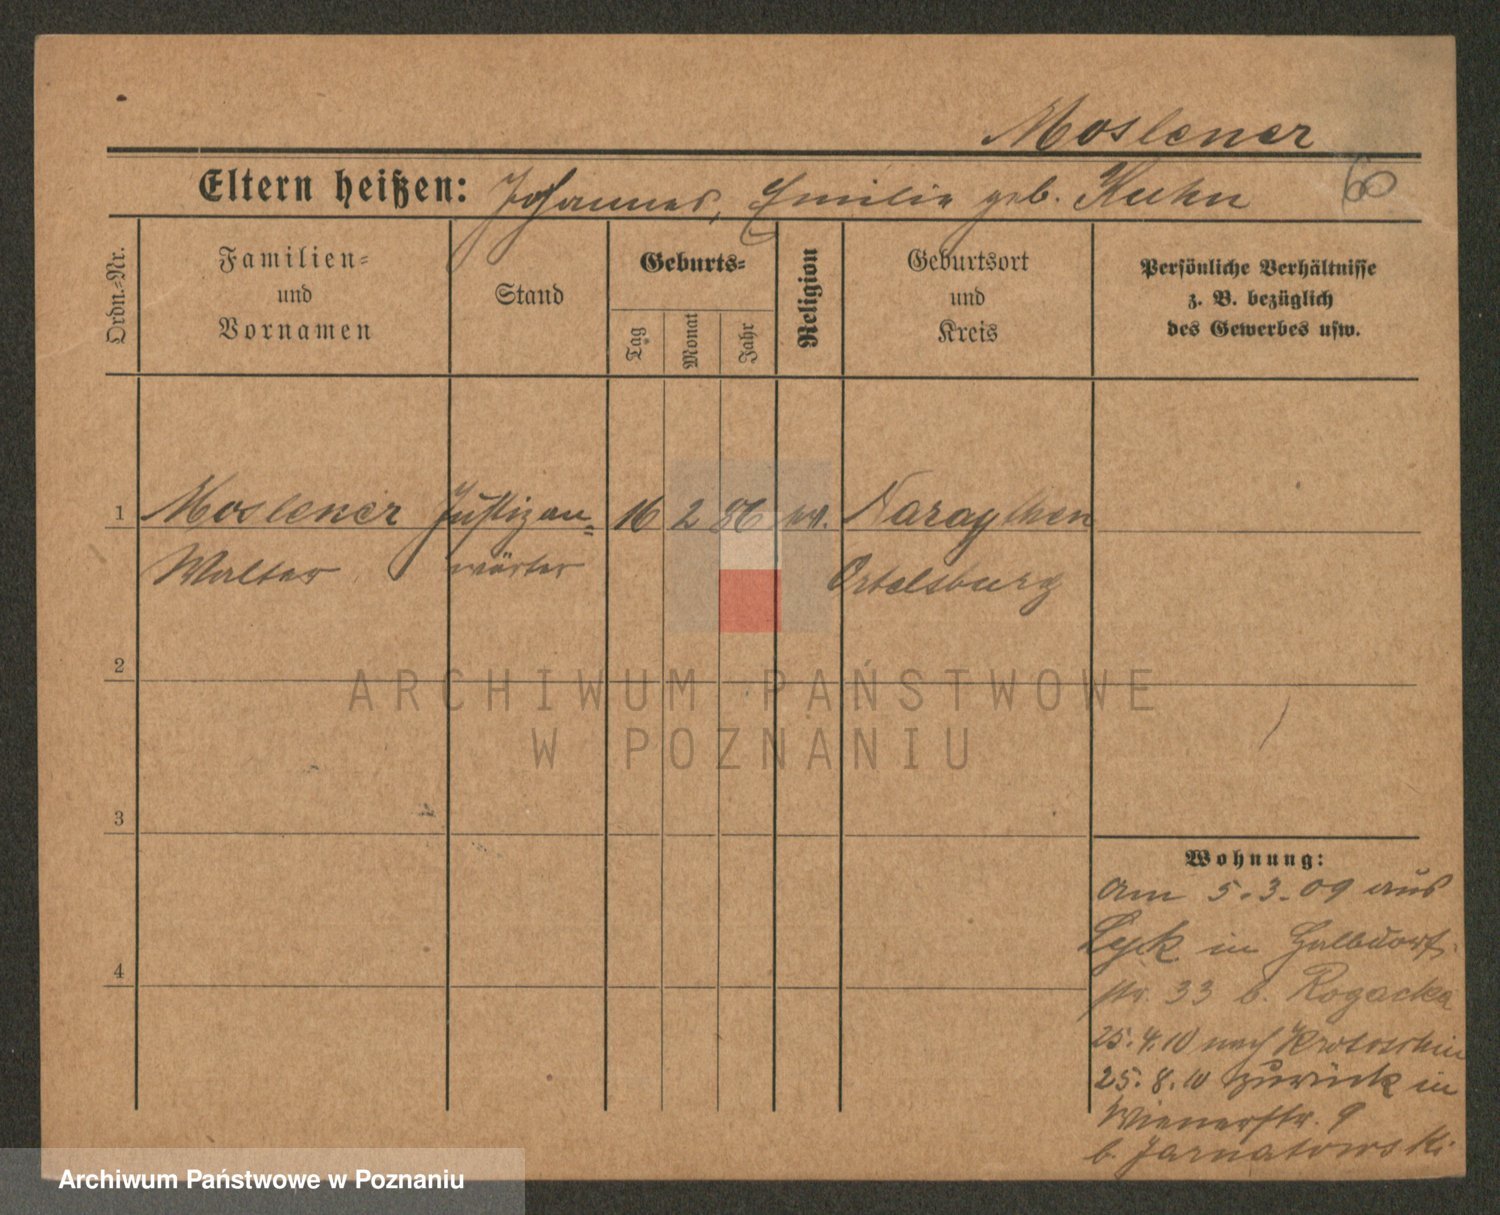 Moslener
Eltern heißen: Johannes, Emilie geb. Kuhn
60
Ordn.=Nr.
Familien=
und
Vornamen
Stand
Geburts=
Tag
Monat
Jahr
Religion
Geburtsort
und
Kreis
Persönliche Verhältnisse
z. B. bezüglich
des Gewerbes usw.
1 Moslener Justizan= 16 2 86 ev. Naraythen
Walter wärter Ortelsburg
2
ARCHIWUM PAŃSTWOWE
W POZNANIU
3
4
Wohnung:
am 5.3.09 aus
Lyk in Halbdorf
str. 33 b. Rogacka
25.4.10 nach Krotoschin
25.8.10 zurück in
Wienerstr. 9
b. Jarnatowski
Archiwum Państwowe w Poznaniu